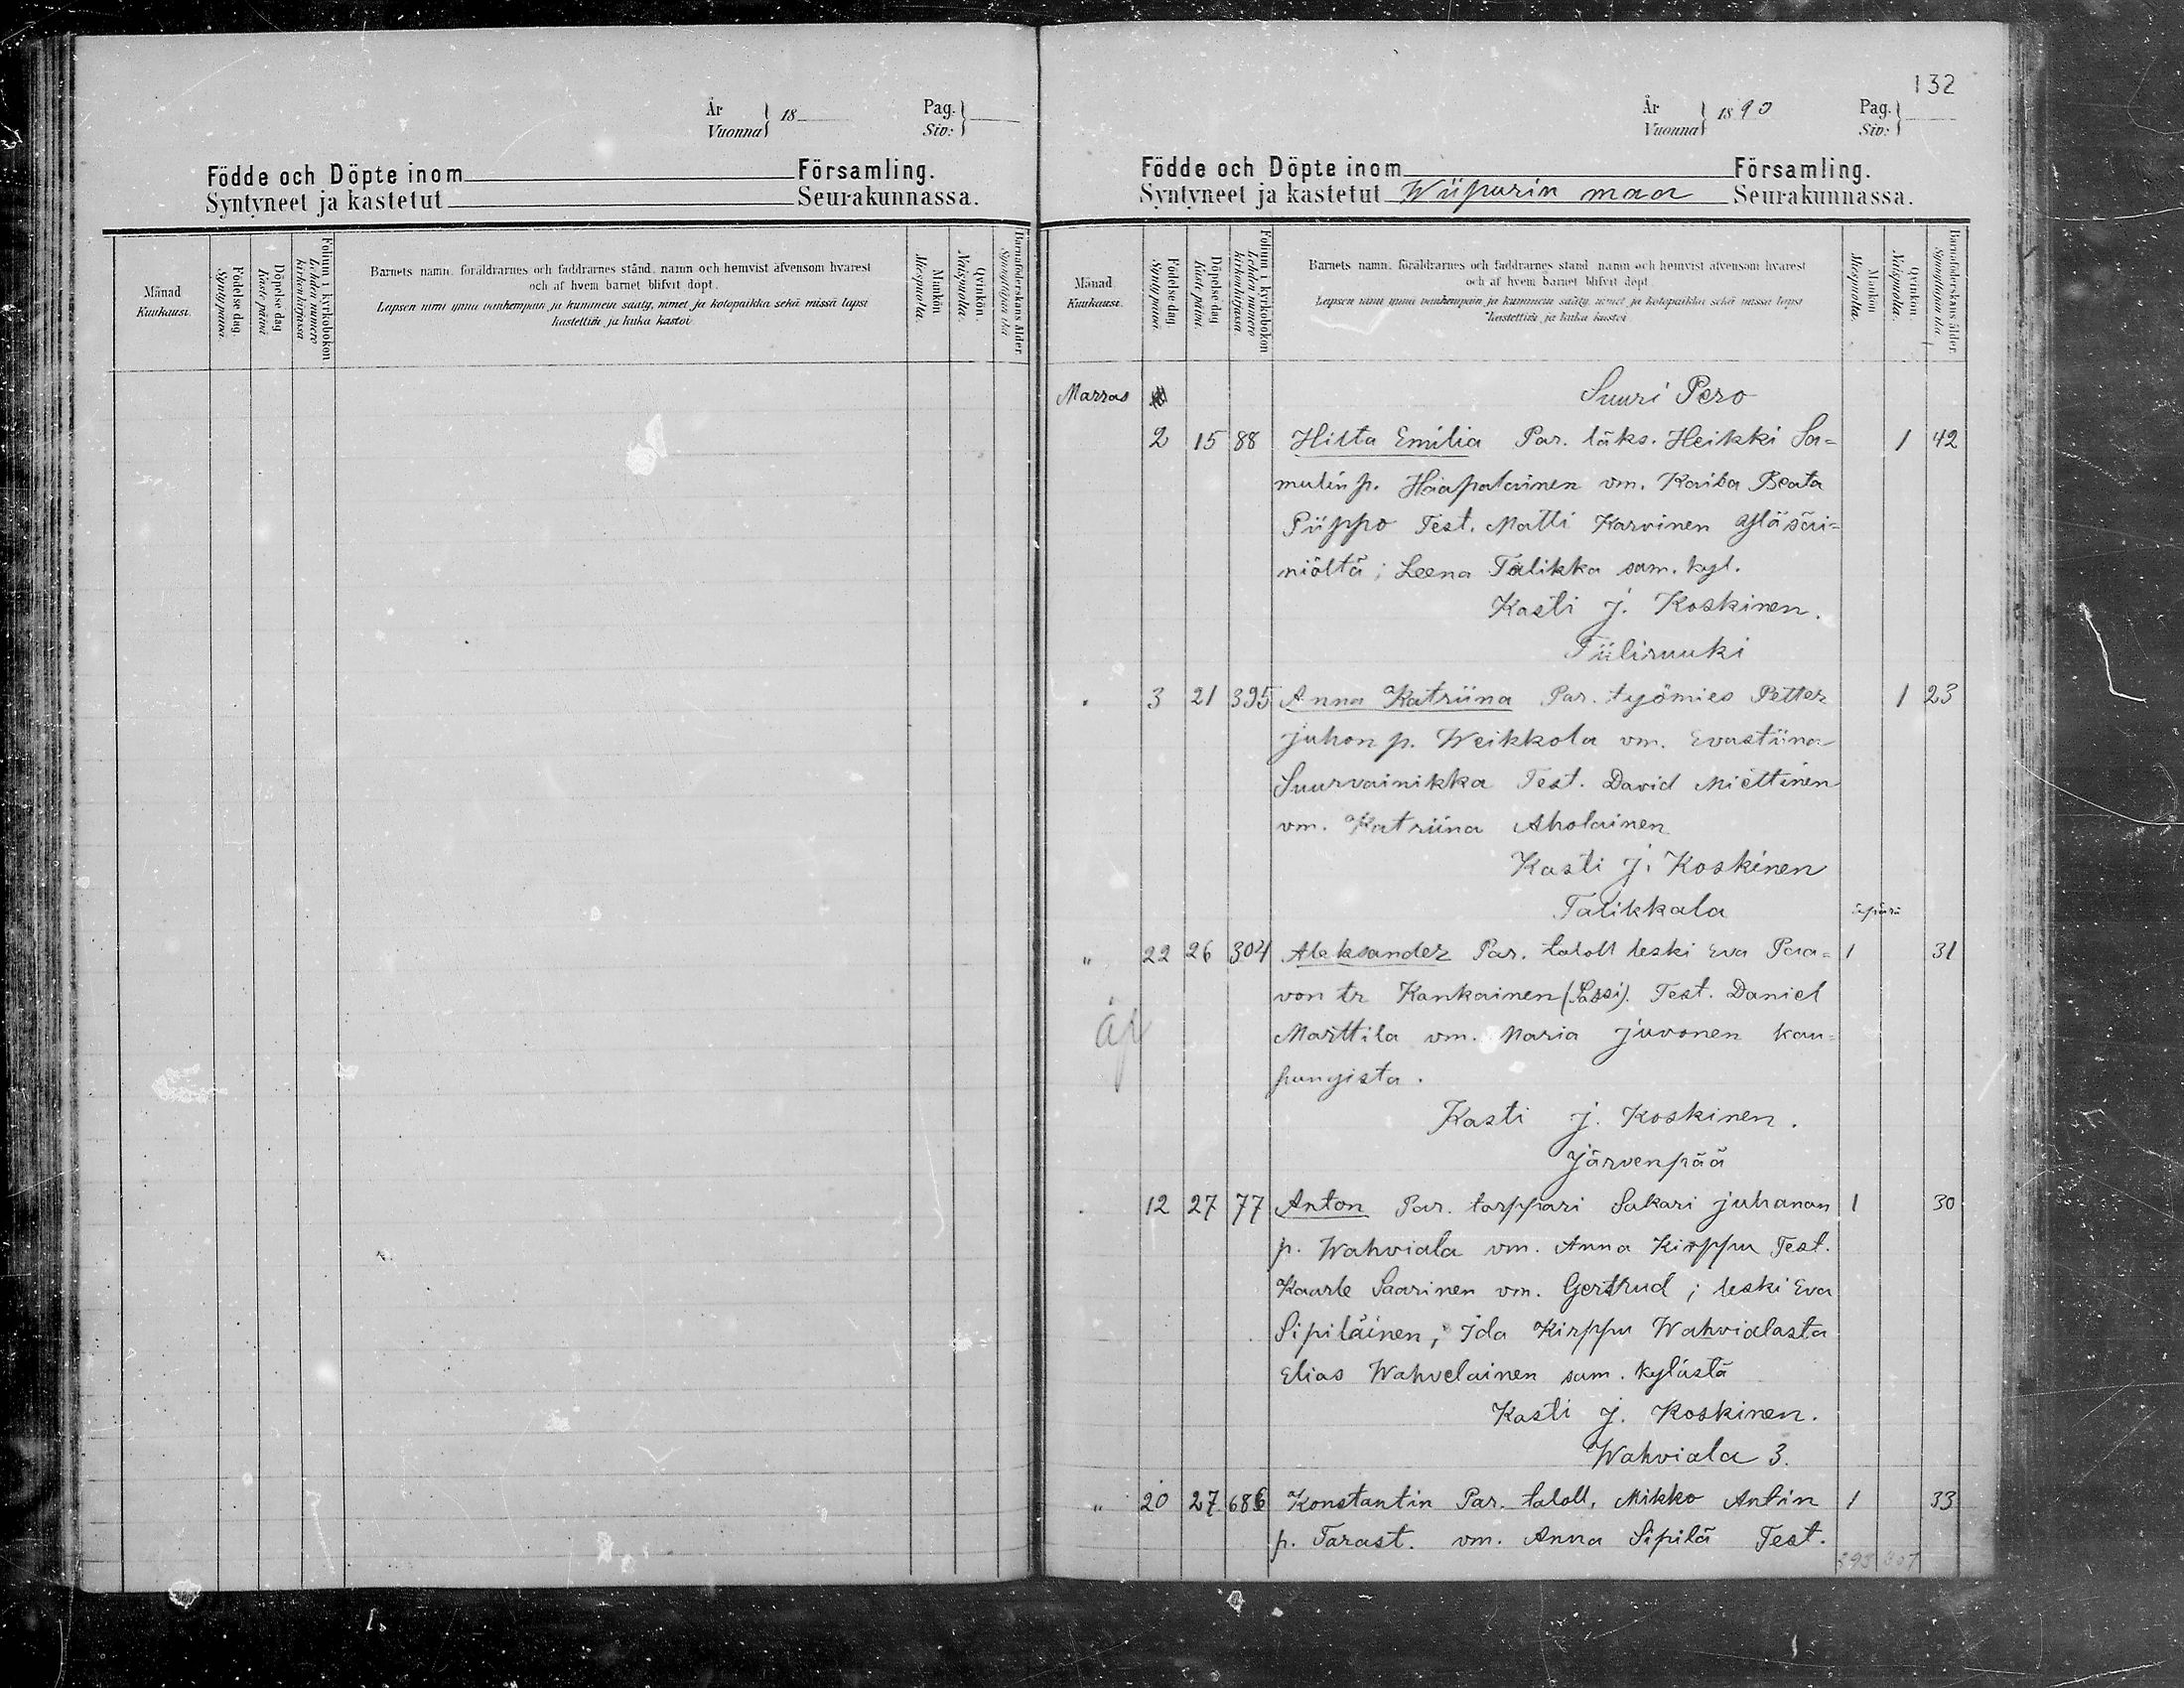 År
Vuonna } 18
Pag.
Siv: }
Födde och Döpte inom Församling.
Syntyneet ja kastetut Seurakunnassa.
Månad
Kuukausi.
Födelse dag.
Synty päivä.
Döpelse dag
Kaste päivä
Folium i kyrkoboken
Lehden numero
kirkonkirjassa
Barnets namn, föräldrarnes och faddrarnes stånd, namn och hemvist äfvensom hvarest
och af hvem barnet blifvit döpt.
Lapsen nimi ynnä vanhempain ja kummein sääty, nimet ja kotopaikka sekä missä lapsi
kastettiin ja kuka kastoi
Mankön
Miespuolta.
Qvinkön.
Naispuolta.
Barnaföderskans ålder.
Synnyttäjän ikä
132
År
Vuonna } 1890
Pag.
Siv: }
Födde och Döpte inom Församling.
Syntyneet ja kastetut Wiipurin maa Seurakunnassa.
Månad
Kuukausi.
Födelse dag.
Synty päivä.
Döpelse dag
Kaste päivä.
Folium i kyrkoboken
Lehden numero
kirkonkirjassa.
Barnets namn, föräldrarnes och faddrarnes stånd, namn och hemvist äfvensom hvarest
och af hvem barnet blifvit döpt.
Lapsen nimi ynnä vanhempain ja kummein sääty, nimet ja kotopaikka sekä missä lapsi
kastettiin ja kuka kastoi
Mankön
Miespuolta.
Qvinkön.
Naispuolta.
Barnaföderskans ålder.
Synnyttäjän ikä.
Marras Suuri Pero
2 15 88 Hilta Emilia Par. läks. Heikki Sa= 1 42
mulin p. Haapalainen vm. Kaisa Beata
Piippo Test. Matti Karvinen Yläsäi=
niöltä; Leena Talikka sam. kyl.
Kasti J. Koskinen.
Tiiliruuki
3 21 395 Anna Katriina Par. työmies Petter 1 23
Juhon p. Weikkola vm. Evastiina
Suurvainikka Test. David Miettinen
vm. Katriina Aholainen
Kasti J. Koskinen
Talikkala äpärä
" 22 26 304 Aleksander Par. taloll leski Eva Paa= 1 31
von tr Kankainen (Passi). Test. Daniel
äp Marttila vm. Maria Juvonen kau=
pungista.
Kasti J. Koskinen.
Järvenpää
12 27 77 Anton Par. torppari Sakari Juhanan 1 30
p. Wahviala vm. Anna Kirppu Test.
Kaarle Saarinen vm. Gertrud; leski Eva
Sipiläinen; Ida Kirppu Wahvialasta
Elias Wahvelainen sam. kylästä
Kasti J. Koskinen.
Wahviala 3.
" 20 27 686 Konstantin Par. taloll, Mikko Antin 1 33
p. Tarast. vm. Anna Sipilä Test.